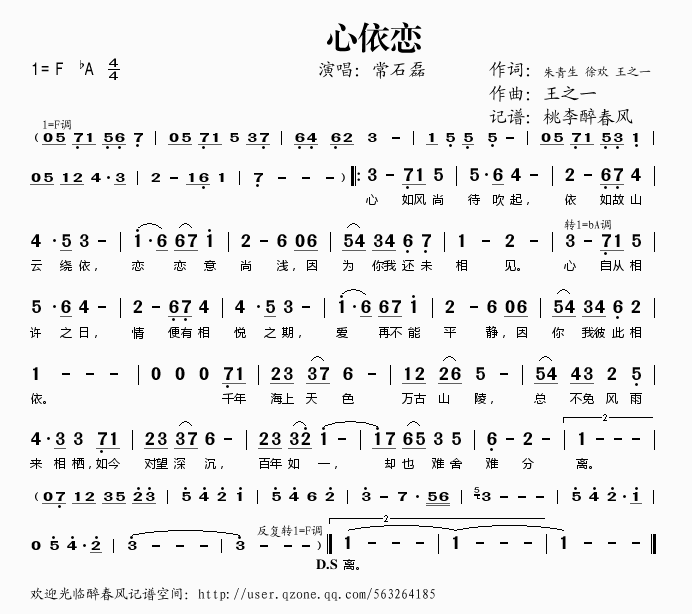 心依恋
1=F ♭A 4/4
演唱：常石磊
作词：朱青生 徐欢 王之一
作曲：王之一
记谱：桃李醉春风
1=F调
( 05 71 56 7 | 05 71 5 37 | 64 62 3 - | 1 5 5 5 - | 05 71 53 1 |
05 12 4·3 | 2 - 16 1 | 7 - - - ) ‖: 3 - 71 5 | 5·6 4 - | 2 - 67 4 |
心 如风 尚 待 吹 起， 依 如故 山
4·5 3 - | 1·6 67 1 | 2 - 6 06 | 54 34 6 7 | 1 - 2 - | 3 - 71 5 |
转1=bA调
云 绕 依， 恋 恋 意 尚 浅，因 为 你我 还 未 相 见。 心 自从 相
5·6 4 - | 2 - 67 4 | 4·5 3 - | 1·6 67 1 | 2 - 6 06 | 54 34 6 2 |
许 之 日， 情 便有 相 悦 之 期， 爱 再不 能 平 静，因 你 我彼 此 相
1 - - - | 0 0 0 71 | 23 37 6 - | 12 26 5 - | 54 43 2 5 |
依。 千年 海上 天 色 万古 山 陵， 总 不免 风 雨
4·3 3 71 | 23 37 6 - | 23 32 1 - | 17 65 3 5 | 6 - 2 - | 1 - - - |
2
来 相 栖，如今 对望 深 沉， 百年 如 一， 却也 难 舍 难 分 离。
( 07 12 35 23 | 5 4 2 1 | 5 4 6 2 | 3 - 7 - 56 | 5 3 - - - | 5 4 2·1 |
0 5 4·2 | 3 - - - | 3 - - - ) :‖ 1 - - - | 1 - - - | 1 - - - ‖
反复转1=F调
2
D.S 离。
欢迎光临醉春风记谱空间：http://user.qzone.qq.com/563264185